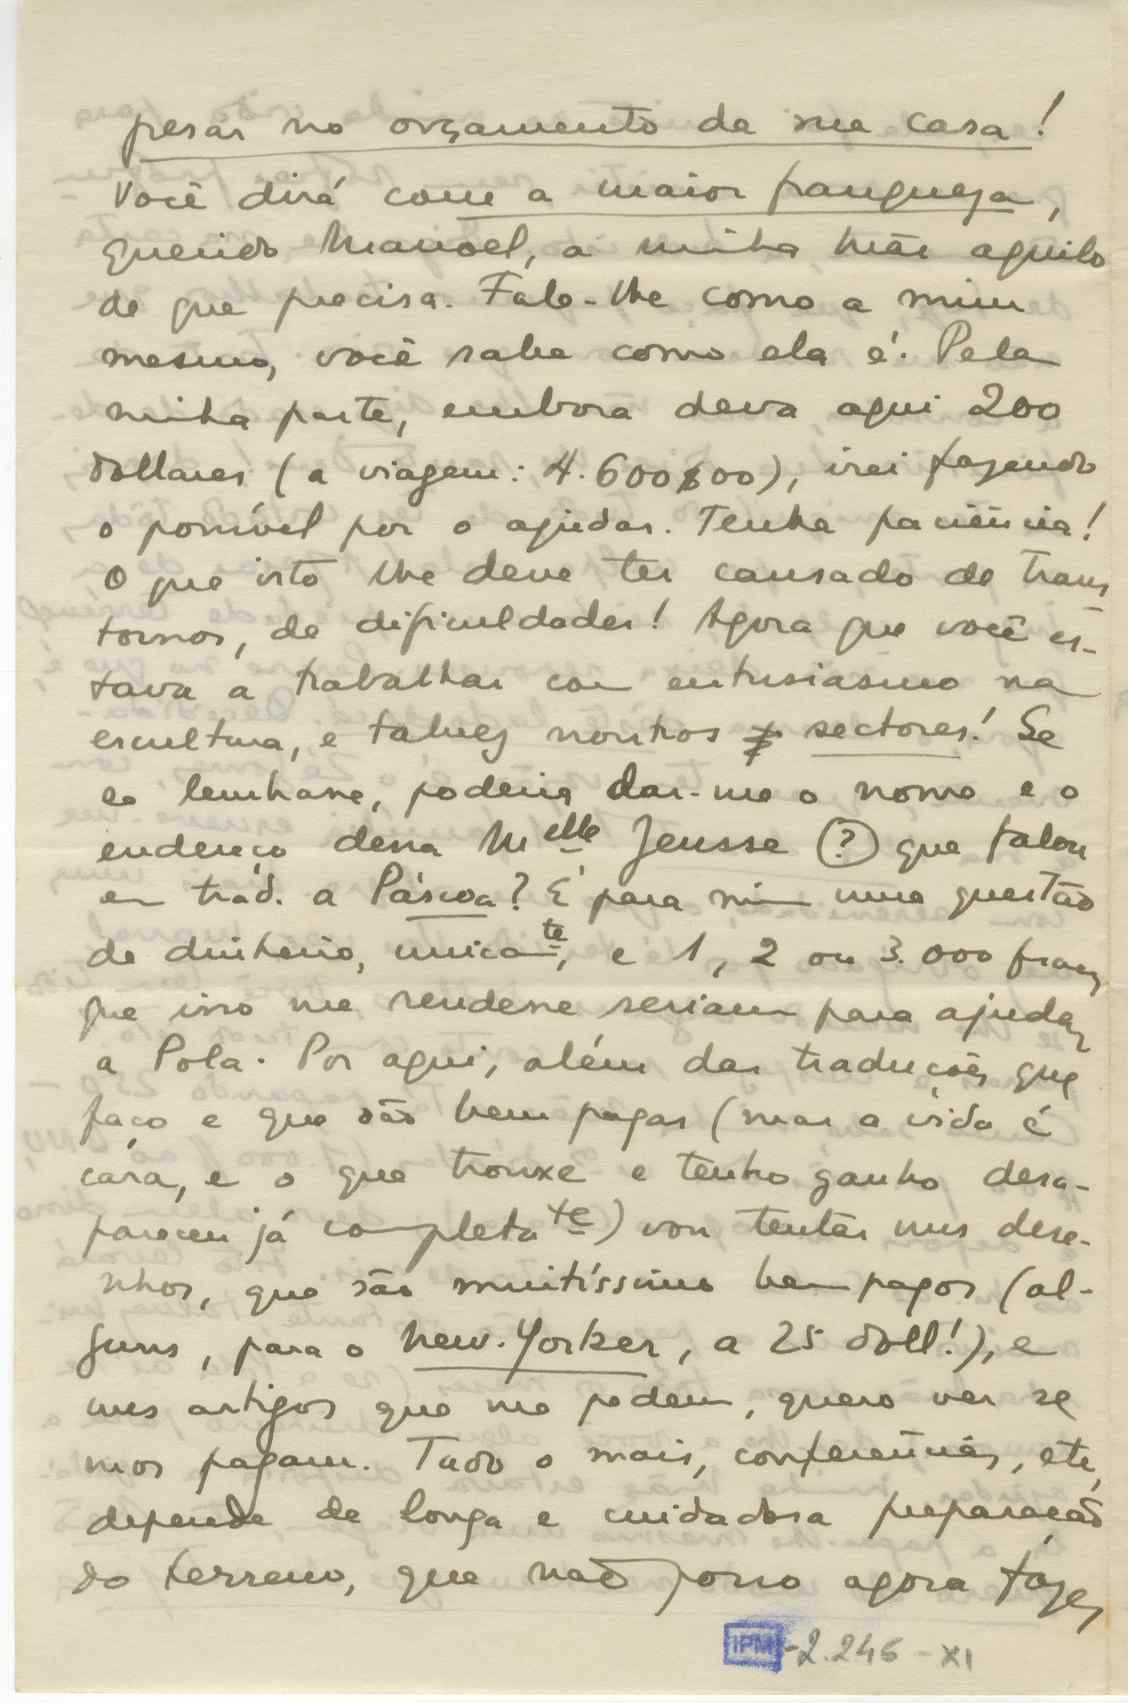 pesar no orçamento da sua casa!
Você dirá com a maior franqueza,
querido Manoel, a minha Mãe aquilo
de que precisa. Fale-lhe como a mim
mesmo, você sabe como ela é. Pela
minha parte, embora deva aqui 200
dollares (a viagem: 4.600$00), irei fazendo
o possível por o ajudar. Tenha paciência!
O que isto lhe deve ter causado de trans
tornos, de dificuldades! Agora que você es-
tava a trabalhar com entusiasmo na
escultura, e talvez noutros sectores! Se
se lembrasse, poderia dar-me o nome e o
endereço dessa Melle Jeusse (?) que falou
em trad. a Páscoa? É para mim uma questão
de dinheiro, unicate, e 1, 2 ou 3.000 francs
que isso me rendesse seriam para ajudar
a Pola. Por aqui, além das traduções que
faço e que são bem pagas (mas a vida é
cára, e o que trouxe e tenho ganho desa-
pareceu já completate) vou tentar uns dese-
nhos, que são muitíssimo bem pagos (al-
guns, para o New-Yorker, a 25 doll!), e
uns artigos que me pedem, quero ver se
mos pagam. Tudo o mais, conferências, etc,
depende de longa e cuidadosa preparação
do terreno, que não posso agora fazer
IPM -2.246-XI